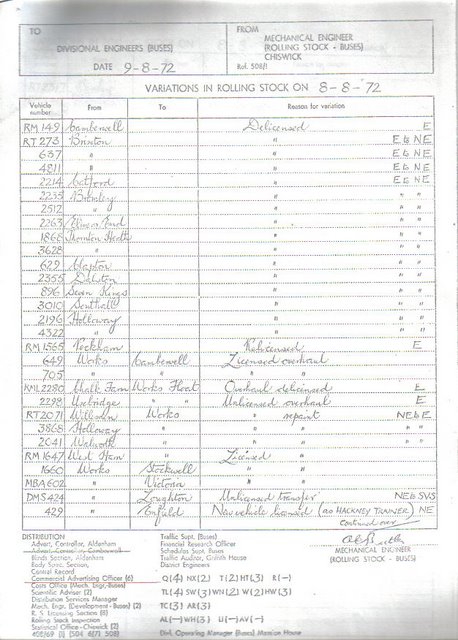 TO
DIVISIONAL ENGINEERS (BUSES)
DATE 9-8-72
FROM
MECHANICAL ENGINEER
(ROLLING STOCK - BUSES)
CHISWICK
Ref. 508/1
VARIATIONS IN ROLLING STOCK ON 8-8-'72
Vehicle number From To Reason for variation
RM 149 Camberwell Delicensed E
RT 273 Brixton " E to NE
637 " " E to NE
4811 " " E to NE
2214 Catford " E to NE
2235 Bromley " " "
2512 " " " "
2263 Elmers End " " "
1868 Thornton Heath " " "
3628 " " " "
629 Clapton " " "
2355 Dalston " " "
896 Seven Kings " " "
3010 Southall " " "
2196 Holloway " " "
4322 " " " "
RM 1565 Peckham Relicensed E
649 Works Camberwell Licensed overhaul
705 " " "
RML 2280 Chalk Farm Works Float Overhaul delicensed E
2298 Uxbridge " Unlicensed overhaul E
RT 2071 Willesden Works " repaint NE to E
3868 Holloway " " " "
2041 Walworth " " " "
RM 1647 West Ham Licensed "
1660 Works Stockwell " "
MBA 602 " Victoria " "
DMS 424 " Loughton Unlicensed transfer NE to SVS
429 " Enfield New vehicle licensed (as HACKNEY TRAINER) NE
continued over
MECHANICAL ENGINEER
(ROLLING STOCK - BUSES)
DISTRIBUTION
Advert. Controller, Aldenham
Blinds Section, Aldenham
Body Struc. Section,
Central Record
Commercial Advertising Officer (6)
Costs Office (Mech. Engr.-Buses)
Scientific Adviser (2)
Distribution Services Manager
Mech. Engr. (Development - Buses) (2)
R. S. Licensing Section (5)
Rolling Stock Inspection
Statistical Office - Chiswick (2)
Traffic Supt. (Buses)
Financial Research Officer
Schedules Supt. Buses
Traffic Auditor, Griffith House
District Engineers
Q(4) NX(2) T(2) HT(3) R(—)
TL(4) SW(3) WN(2) W(2) HW(3)
TC(3) AR(3)
AL(—) WH(3) U(—) AV(—)
Divl. Operating Manager (Buses) Mansion House